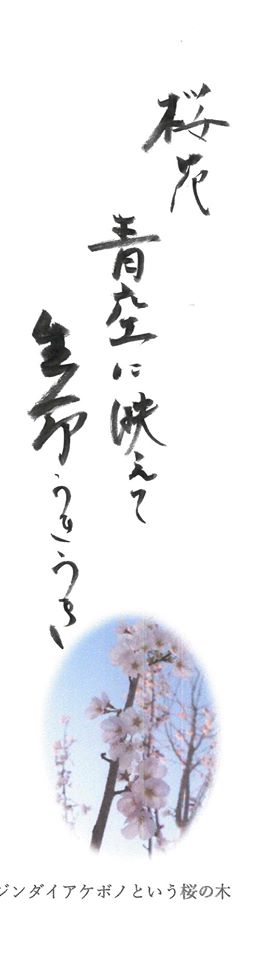 桜花
青空に映えて
生命うきうき
ジンダイアケボノという桜の木